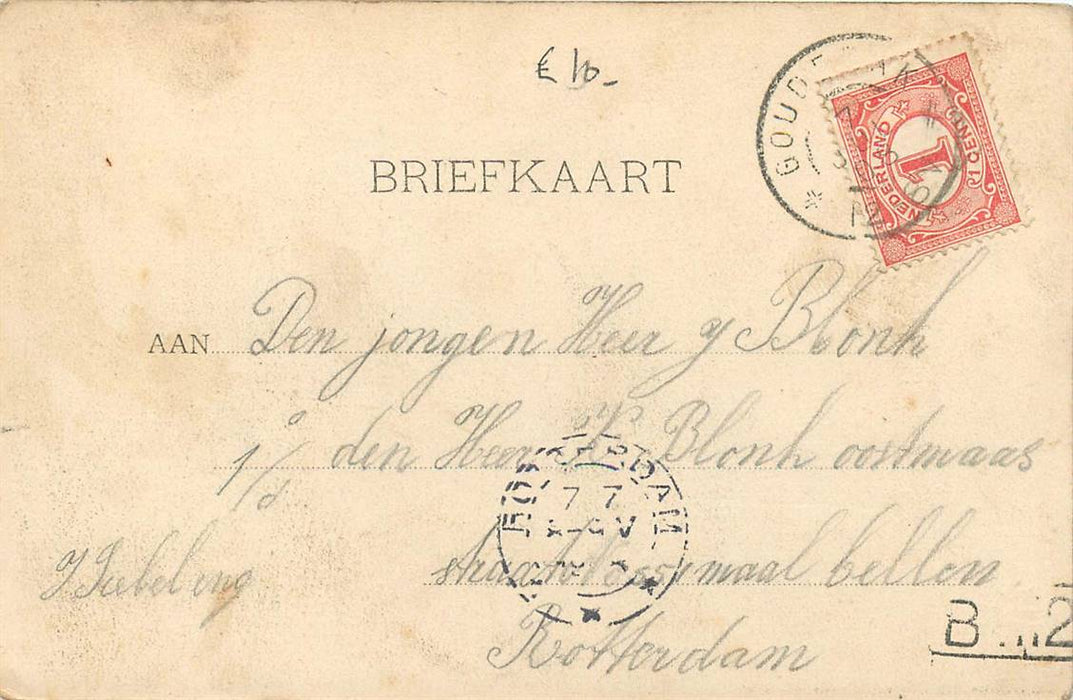 € 10-
BRIEFKAART
GOUD
NEDERLAND
1 CENT
1
AAN Den jongen Heer y Blonk
1 den Heer Blonk oostmaas
straat maal bellen
Rotterdam
ROTTERDAM
7 7
B 2